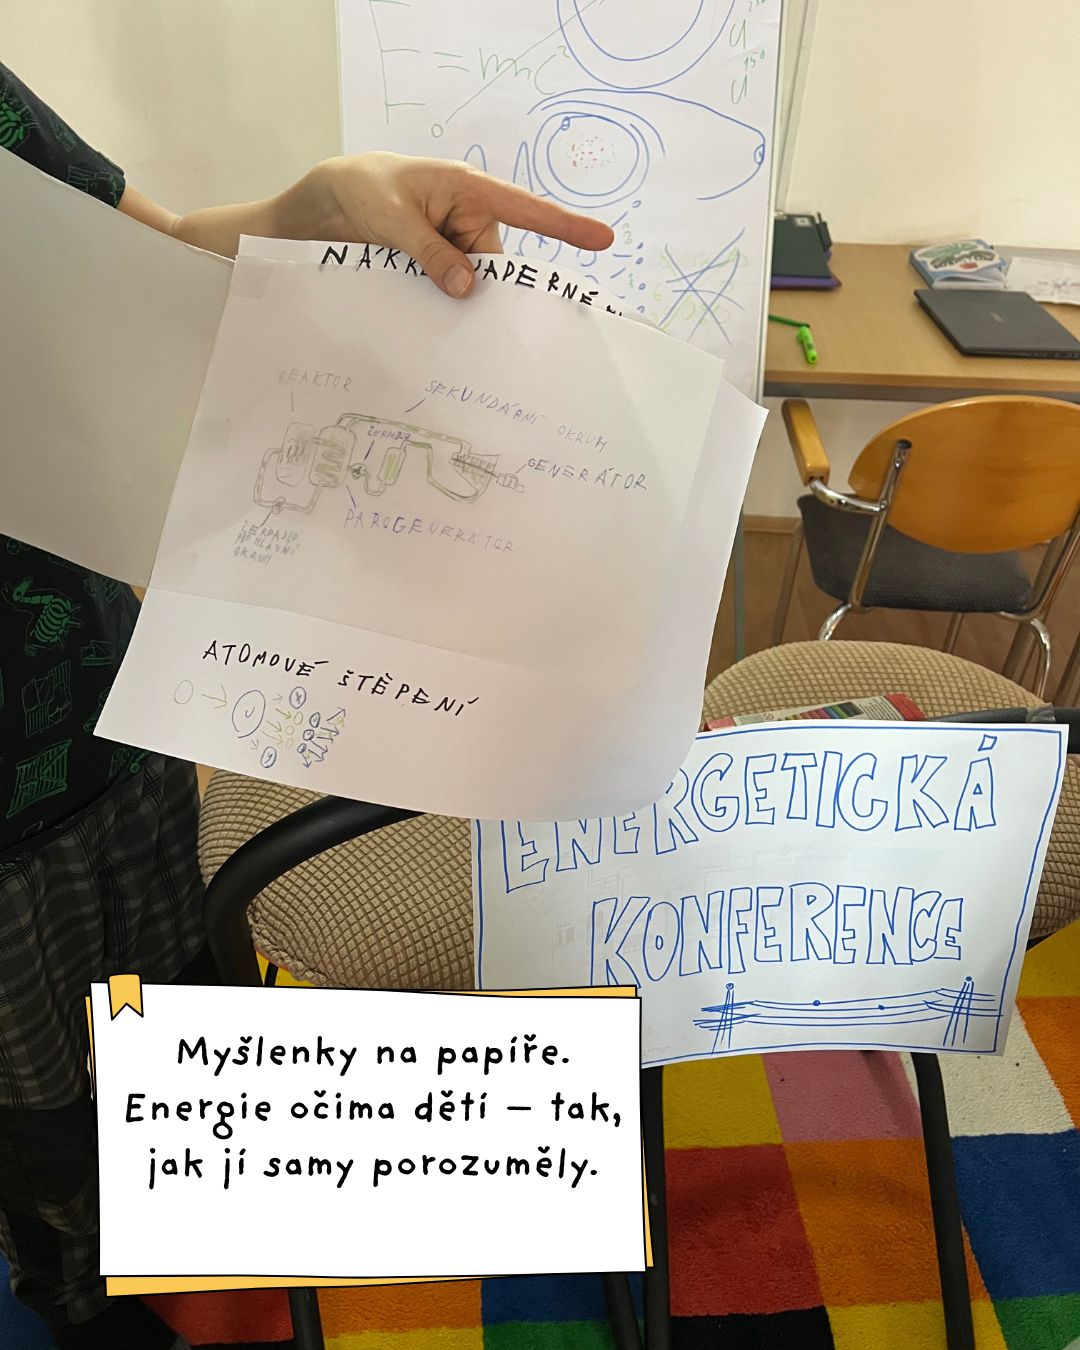 E=mc²
NÁKRES JADERNÉ
REAKTOR
SEKUNDÁRNÍ OKRUH
GENERÁTOR
PAROGENERÁTOR
ČERPADLO
PRO HLAVNÍ
OKRUH
ATOMOVÉ ŠTĚPENÍ
U
X
Y
ENERGETICKÁ
KONFERENCE
Myšlenky na papíře.
Energie očima dětí – tak,
jak jí samy porozuměly.